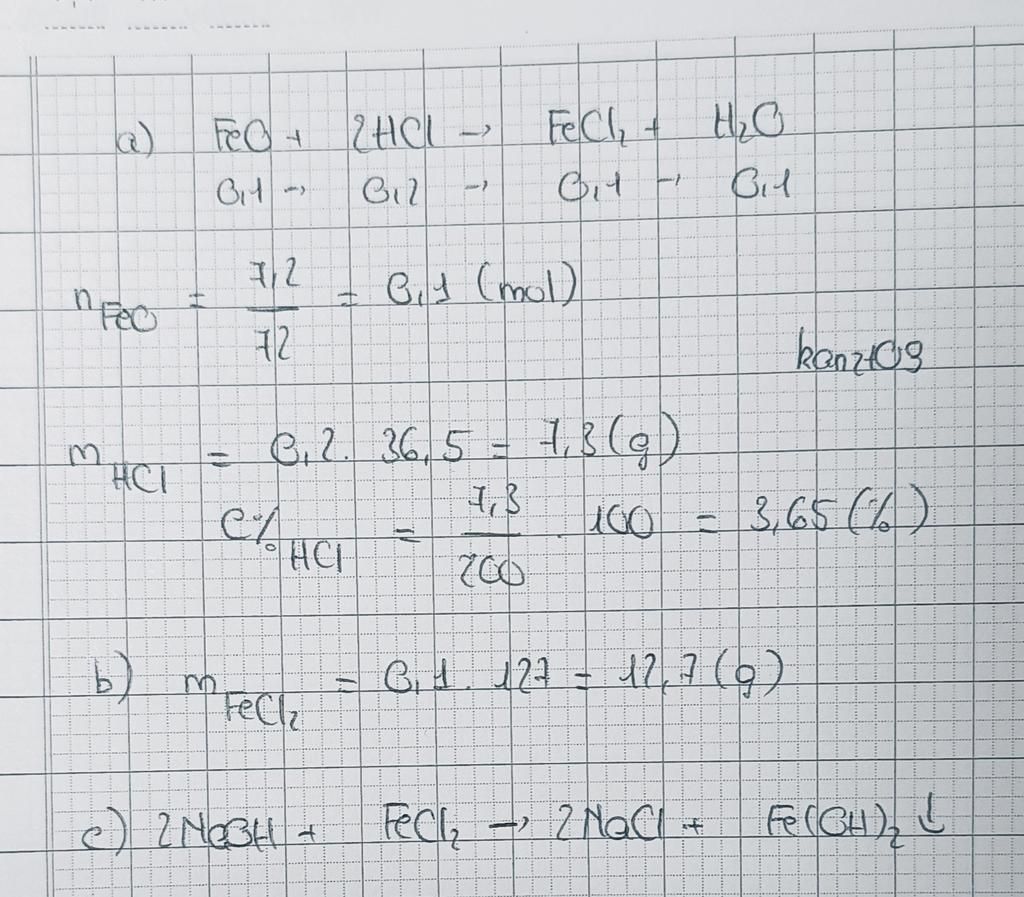 a) FeO + 2HCl → FeCl₂ + H₂O
0,1 → 0,2 → 0,1 → 0,1
n_FeO = 7,2/72 = 0,1 (mol)
kanzt09
m_HCl = 0,2. 36,5 = 7,3 (g)
C%_HCl = 7,3/200 . 100 = 3,65 (%)
b) m_FeCl₂ = 0,1. 127 = 12,7 (g)
c) 2NaOH + FeCl₂ → 2NaCl + Fe(OH)₂ ↓